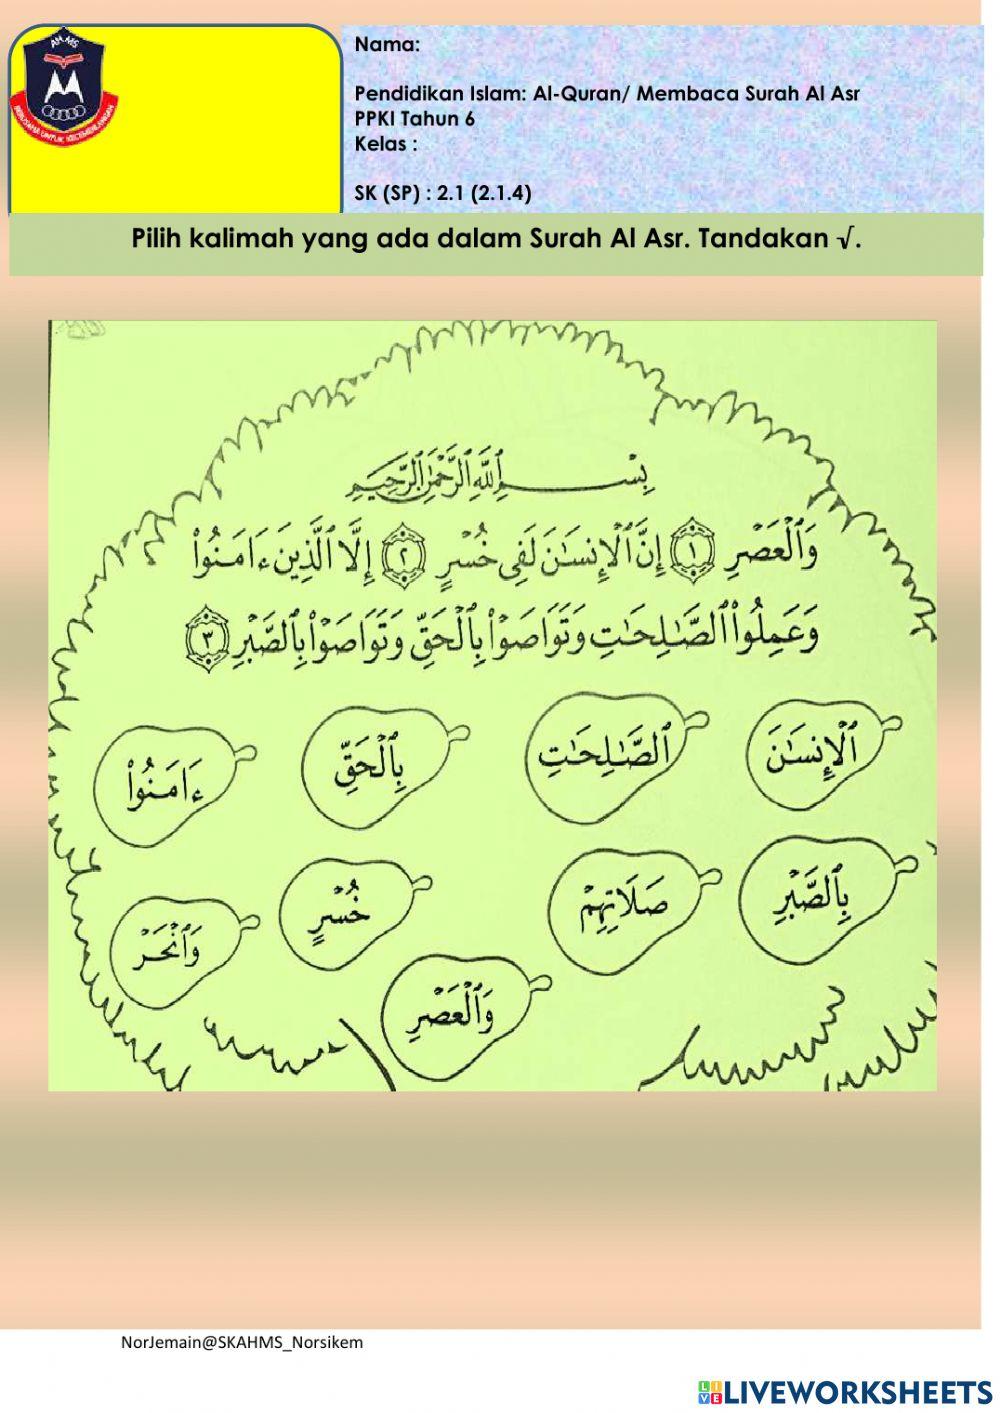 Nama:
Pendidikan Islam: Al-Quran/ Membaca Surah Al Asr
PPKI Tahun 6
Kelas :
SK (SP) : 2.1 (2.1.4)
Pilih kalimah yang ada dalam Surah Al Asr. Tandakan √.
بِسْمِ ٱللَّهِ ٱلرَّحْمَٰنِ ٱلرَّحِيمِ
وَٱلْعَصْرِ ١ إِنَّ ٱلْإِنسَٰنَ لَفِى خُسْرٍ ٢ إِلَّا ٱلَّذِينَ ءَامَنُوا۟
وَعَمِلُوا۟ ٱلصَّٰلِحَٰتِ وَتَوَاصَوْا۟ بِٱلْحَقِّ وَتَوَاصَوْا۟ بِٱلصَّبْرِ ٣
ٱلْإِنسَٰنَ ٱلصَّٰلِحَٰتِ بِٱلْحَقِّ ءَامَنُوا۟
بِٱلصَّبْرِ صَلَاتِهِمْ خُسْرٍ وَٱنْحَرْ
وَٱلْعَصْرِ
NorJemain@SKAHMS_Norsikem
LIVEWORKSHEETS